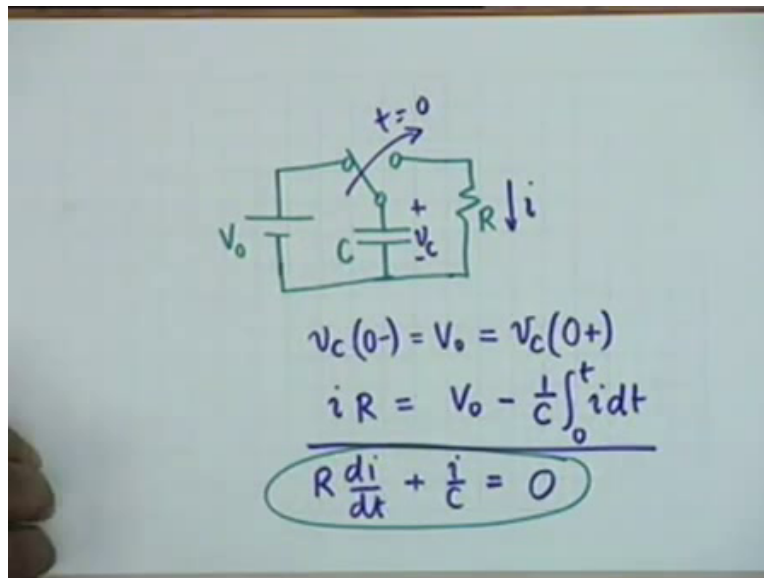 t=0
V₀
C
+
v_c
-
R
i
v_c(0-) = V₀ = v_c(0+)
i R = V₀ - 1/C ∫₀ᵗ i dt
R di/dt + i/C = 0